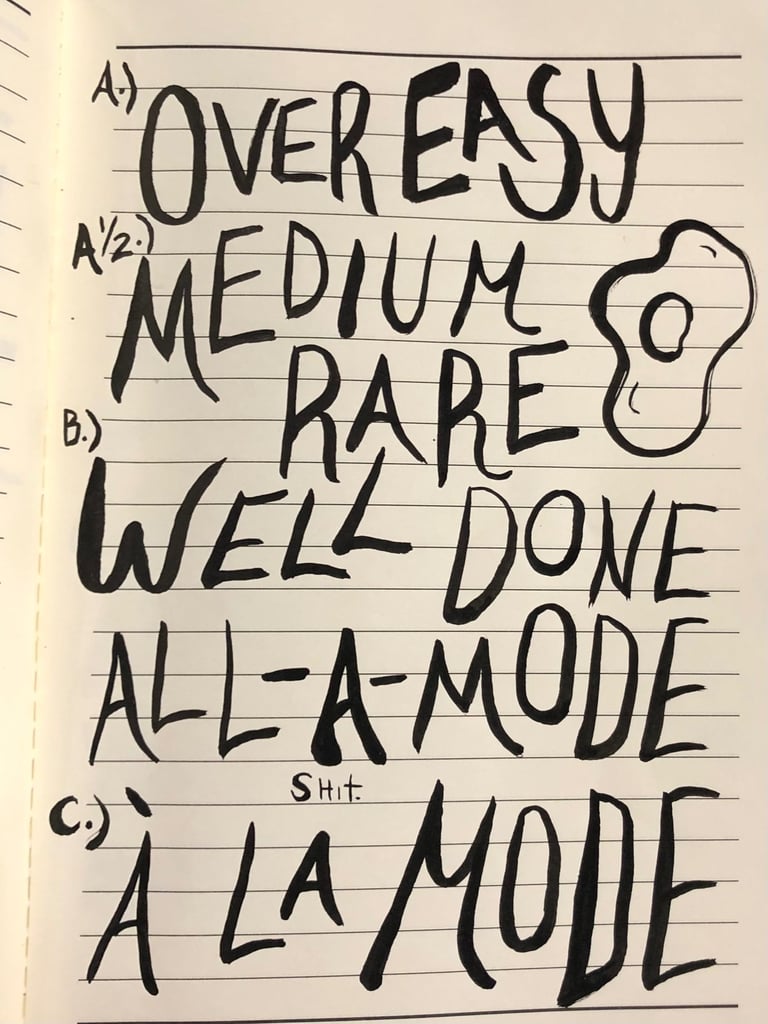 A.) OVER EASY
A 1/2.) MEDIUM
RARE
B.) WELL DONE
ALL-A-MODE
SHIT.
C.) À LA MODE